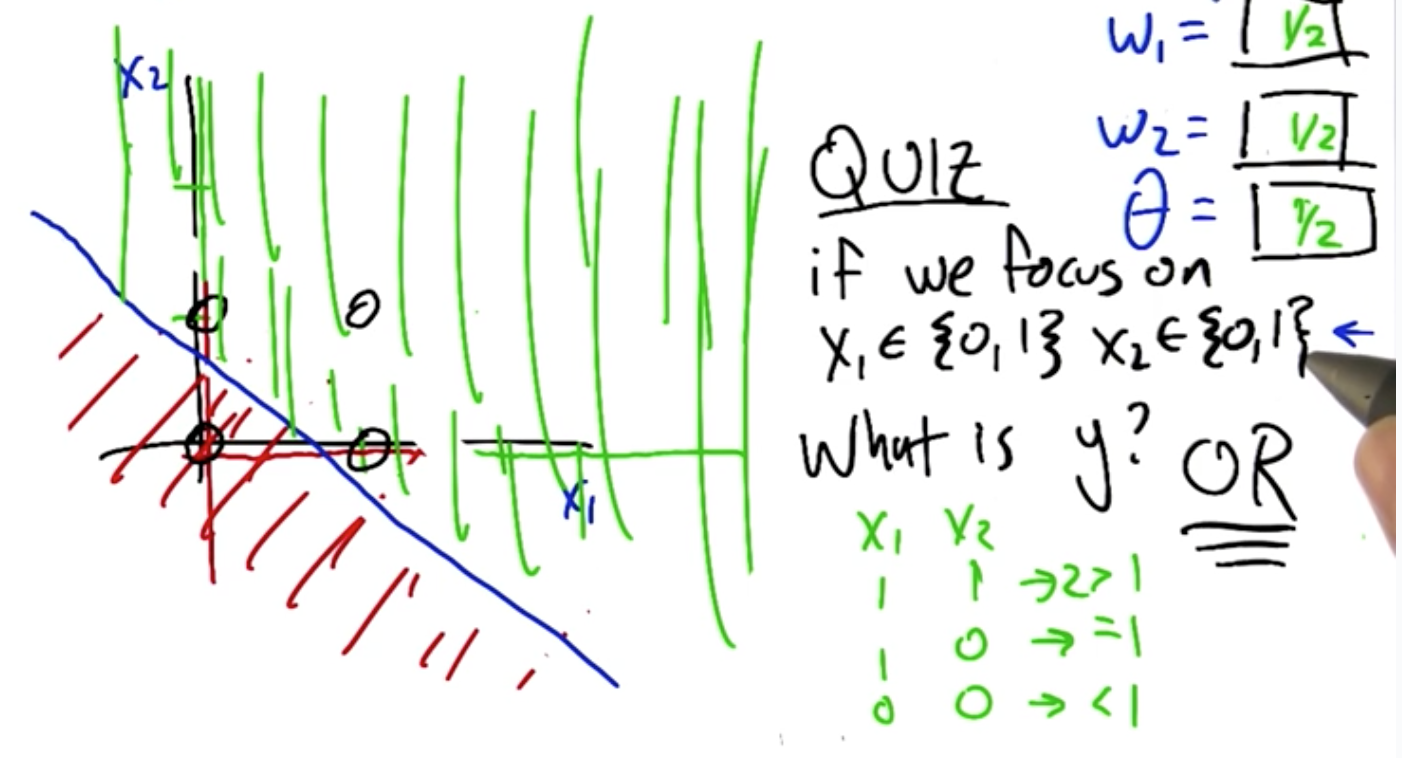 X2
X1
W1 = 1/2
W2 = 1/2
θ = 1/2
QUIZ
if we focus on
X1 ∈ {0,1} X2 ∈ {0,1} ←
What is y? OR
X1 X2
1 1 → 2 > 1
1 0 → = 1
0 0 → < 1